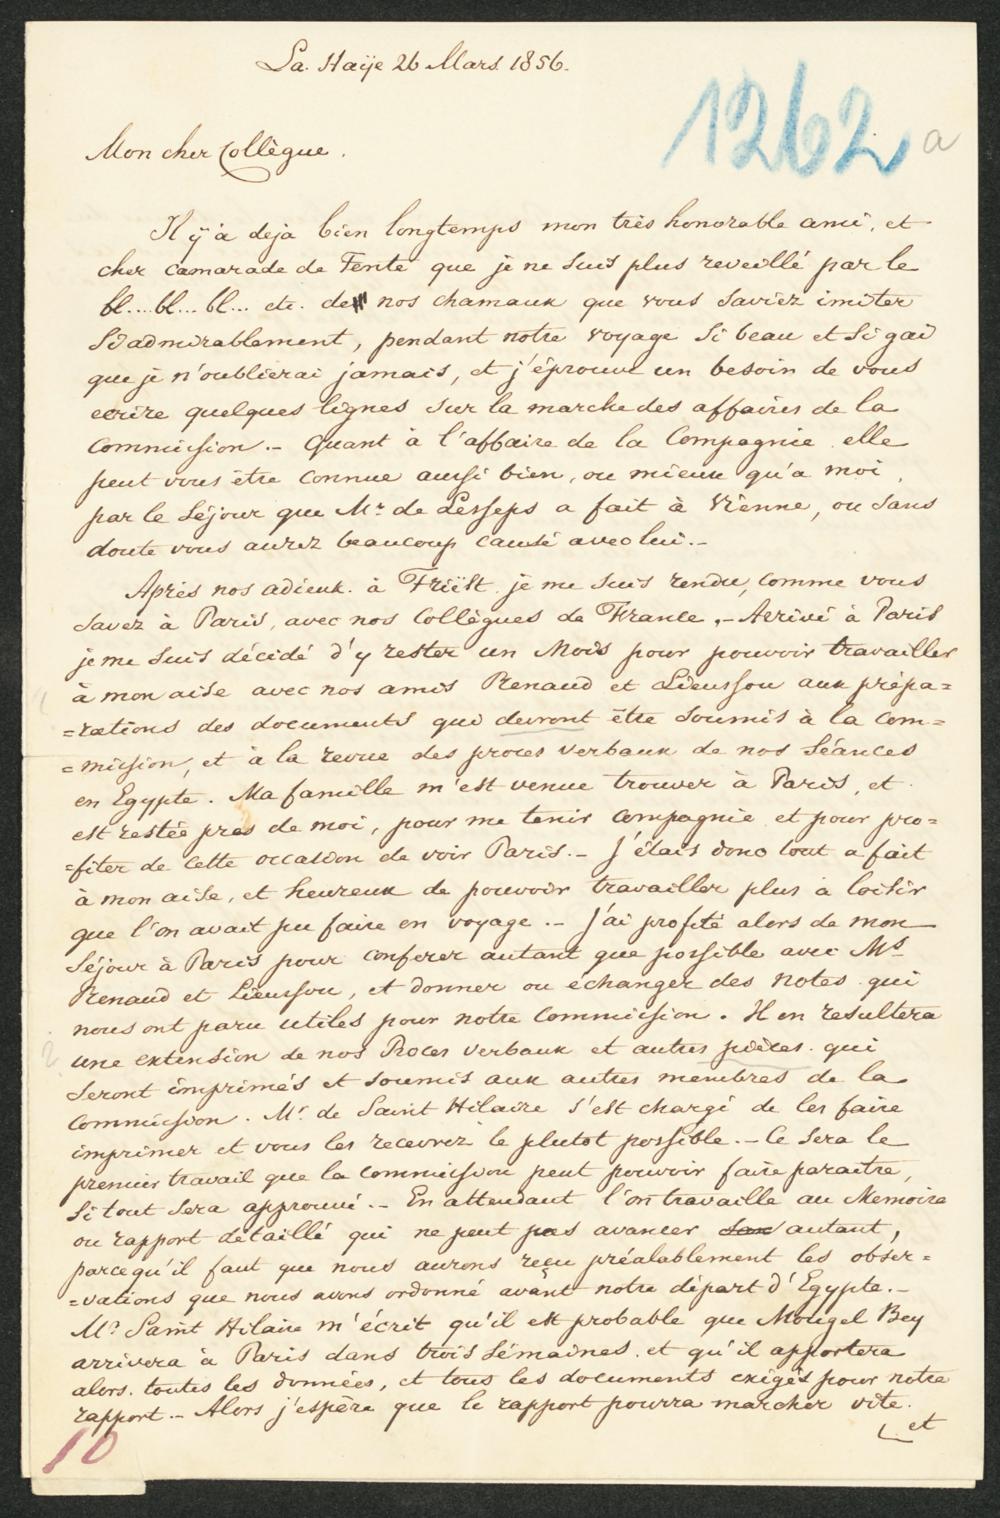 La Haÿe 26 Mars 1856.
1262 a
Mon cher Collègue.
Il ÿ a deja bien longtemps mon très honorable ami, et
cher camarade de Tente que je ne suis plus reveillé par le
bl....bl...bl... etc. de nos chamaux que vous saviez imiter
si admirablement, pendant notre voyage si beau et si gai
que je n'oublierai jamais, et j'éprouve un besoin de vous
ecrire quelques lignes sur la marche des affaires de la
Commission.- Quant à l'affaire de la Compagnie elle
peut vous être connue aussi bien, ou mieux qu'a moi,
par le Séjour que Mr. de Lesseps a fait à Vienne, ou sans
doute vous aurez beaucoup causé avec lui.-
Après nos adieux à Triëst je me suis rendu, comme vous
savez à Paris, avec nos Collègues de France.- Arrivé à Paris
je me suis décidé d'y rester un Mois pour pouvoir travailler
à mon aise avec nos amis Renaud et Lieussou aux prépa=
=rations des documents qui devront être soumis à la Com=
=mission, et à la revue des proces verbaux de nos Séances
en Egypte. Ma famille m'est venue trouver à Paris, et
est restée pres de moi, pour me tenir compagnie et pour pro=
=fiter de cette occasion de voir Paris.- J'étais donc tout a fait
à mon aise, et heureux de pouvoir travailler plus à loisir
que l'on avait pu faire en voyage.- J'ai profité alors de mon
Séjour à Paris pour conferer autant que possible avec Ms
Renaud et Lieussou, et donner ou échanger des notes qui
nous ont paru utiles pour notre Commission. Il en resultera
une extension de nos Proces verbaux et autres pièces qui
seront imprimés et soumis aux autres membres de la
Commission. Mr. de Saint Hilaire s'est chargé de les faire
imprimer et vous les recevrez le plutot possible.- Ce sera le
premier travail que la Commission peut pouvoir faire paraitre,
Si tout sera approuvé.- En attendant l'on travaille au Memoire
ou rapport detaillé qui ne peut pas avancer autant,
parcequ'il faut que nous aurons reçu préalablement les obser=
=vations que nous avons ordonné avant notre départ d'Egypte.-
Mr Saint Hilaire m'écrit qu'il est probable que Mougel Bey
arrivera à Paris dans trois Sémaines et qu'il apportera
alors toutes les données, et tous les documents exigés pour notre
rapport.- Alors j'espère que le rapport pourra marcher vite.
et
10